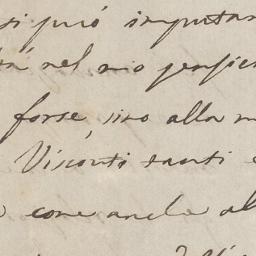 si può imputar
nel mio pensier
forse sino alla m
Visconti tanti
come anche al